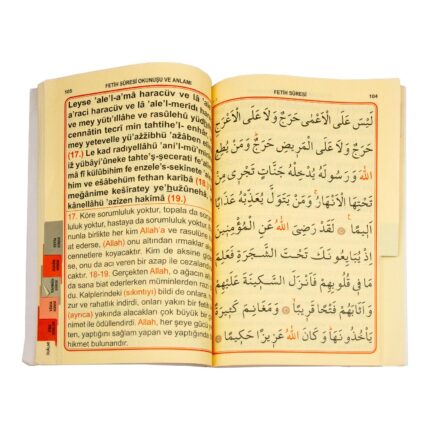 105 FETİH SÛRESİ OKUNUŞU VE ANLAMI
Leyse 'ale'l-a'mâ haracüv ve lâ 'ale'l-
a'raci haracüv ve lâ 'ale'l-merîdı harac
ve mey yütı'ıllahe ve rasûlehû yüdhılhü
cennâtin tecrî min tahtihe'l- enhâr
ve mey yetevelle yü'azzibhü 'azâben elîmâ
(17.) Le kad radıyellâhü 'ani'l-mü'minîne
iz yübâyi'ûneke tahte'ş-şecerati fe'alime
mâ fî kulûbihim fe enzele's-sekînete 'aley-
him ve esâbehüm fethan karîbâ (18.)
meğânime kesîratey ye'huzûnehâ
kânellâhü 'azîzen hakîmâ (19.)
17. Köre sorumluluk yoktur, topala da sorum-
luluk yoktur, hastaya da sorumluluk yoktur.
nunla birlikte her kim Allah'a ve rasulüne
at ederse, (Allah) onu altından ırmaklar akan
cennetlere koyacaktır. Kim de aksine gider-
se, onu da acı veren bir azap ile cezalandıra-
caktır. 18-19. Gerçekten Allah, o ağacın altında
da sana biat ederlerken müminlerden razı ol-
du. Kalplerindeki (sıkıntıyı) bildi de onlara huzur
ve rahatlık indirdi, onları yakın bir fetih
(ayrıca) yakında alacakları çok büyük bir ga-
nimet ile ödüllendirdi. Allah, her şeye gücü
yeten, yaptığını sağlam yapan ve yaptığında
hikmet bulunandır.
FETİH SÛRESİ 104
لَيْسَ عَلَى الْاَعْمٰى حَرَجٌ وَلَا عَلَى الْاَعْرَجِ
حَرَجٌ وَلَا عَلَى الْمَرٖيضِ حَرَجٌ وَمَنْ يُطِعِ
اللّٰهَ وَرَسُولَهُ يُدْخِلْهُ جَنَّاتٍ تَجْرٖى مِنْ
تَحْتِهَا الْاَنْهَارُ وَمَنْ يَتَوَلَّ يُعَذِّبْهُ عَذَابًا
اَلٖيمًا لَقَدْ رَضِىَ اللّٰهُ عَنِ الْمُؤْمِنٖينَ
اِذْ يُبَايِعُونَكَ تَحْتَ الشَّجَرَةِ فَعَلِمَ
مَا فٖى قُلُوبِهِمْ فَاَنْزَلَ السَّكٖينَةَ عَلَيْهِمْ
وَاَثَابَهُمْ فَتْحًا قَرٖيبًا وَمَغَانِمَ كَثٖيرَةً
يَاْخُذُونَهَا وَكَانَ اللّٰهُ عَزٖيزًا حَكٖيمًا